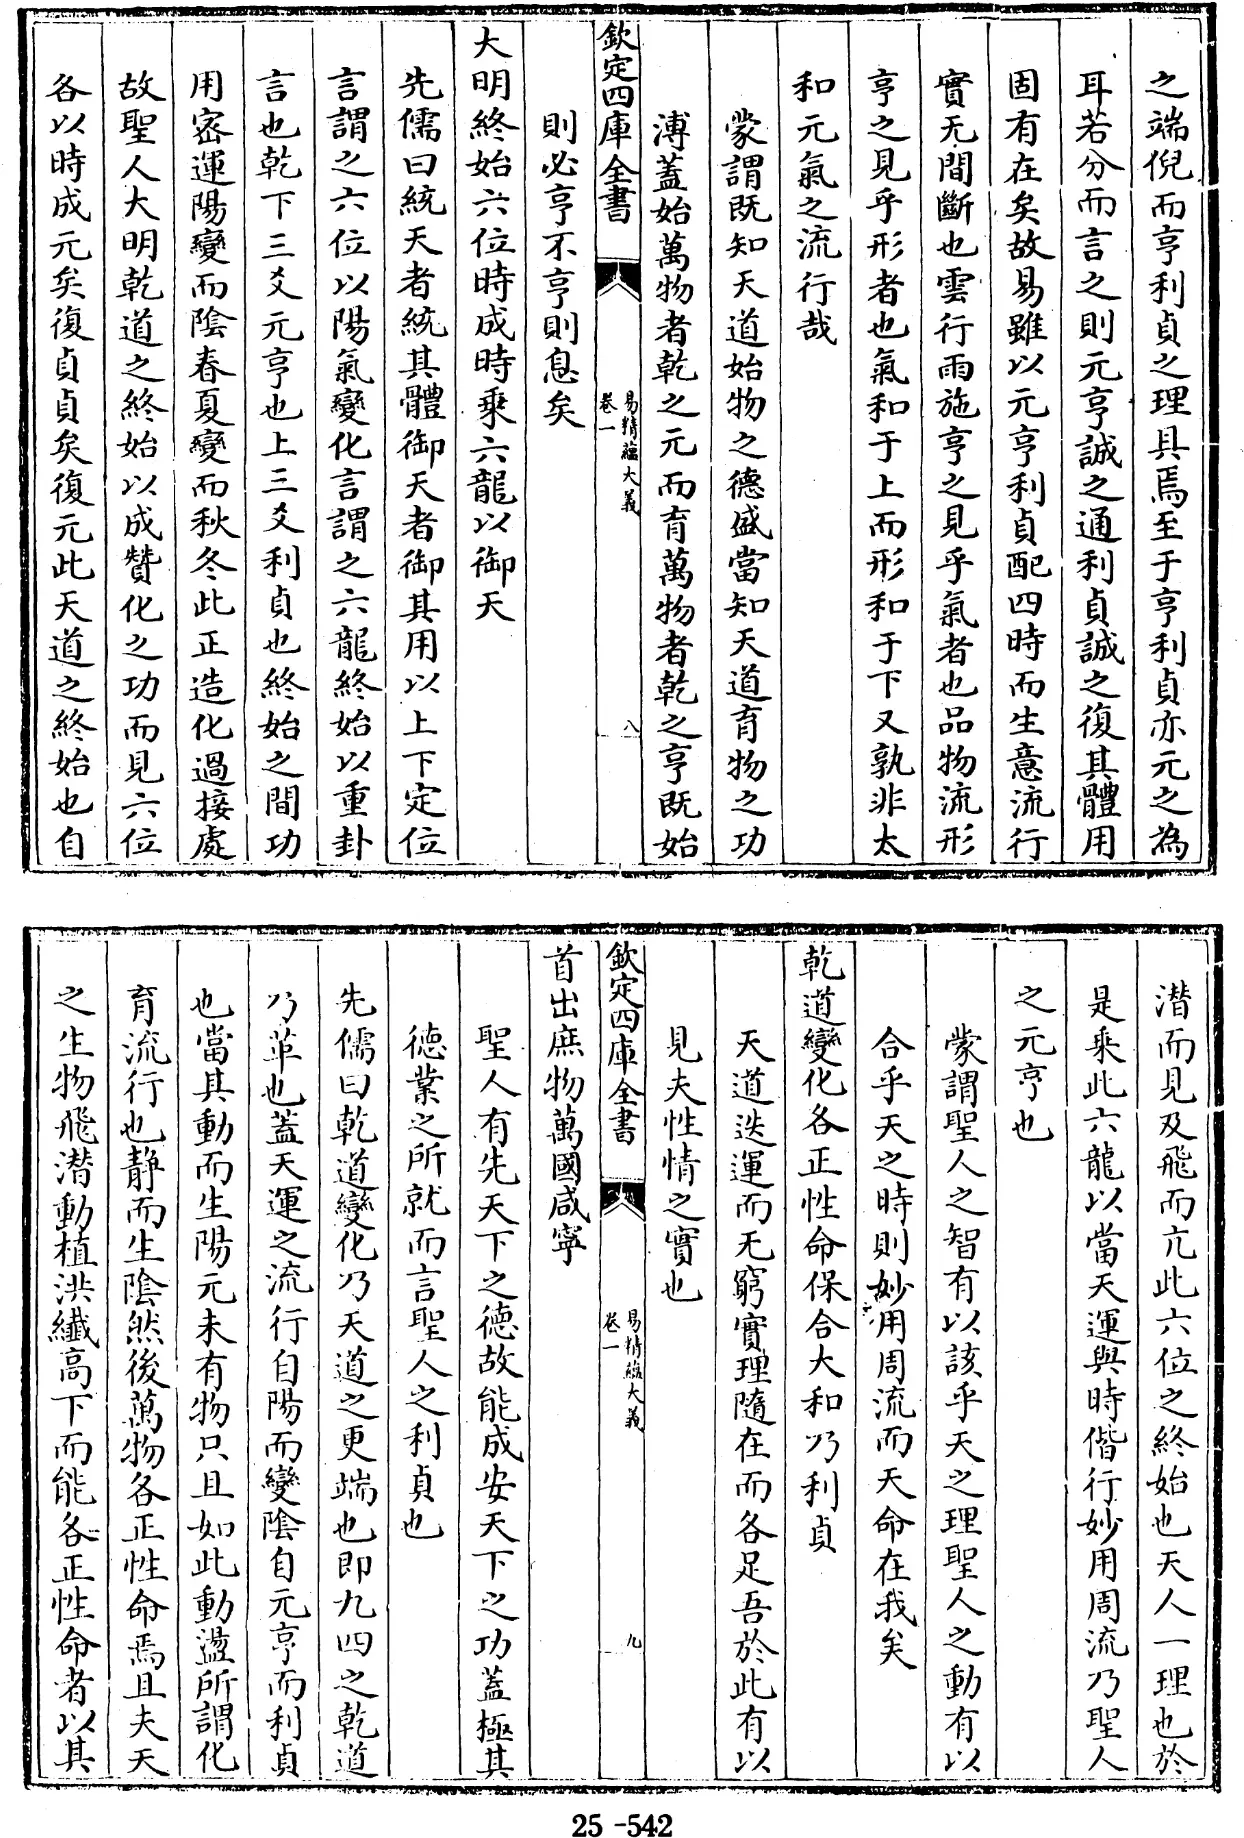 之端倪而亨利貞之理具焉至于亨利貞亦元之為
耳若分而言之則元亨誠之通利貞誠之復其體用
固有在矣故易雖以元亨利貞配四時而生意流行
實无間斷也雲行雨施亨之見乎氣者也品物流形
亨之見乎形者也氣和于上而形和于下又孰非太
和元氣之流行哉
蒙謂既知天道始物之德盛當知天道育物之功
溥蓋始萬物者乾之元而育萬物者乾之亨既始
欽定四庫全書
易精蘊大義
卷一
八
則必亨不亨則息矣
大明終始六位時成時乘六龍以御天
先儒曰統天者統其體御天者御其用以上下定位
言謂之六位以陽氣變化言謂之六龍終始以重卦
言也乾下三爻元亨也上三爻利貞也終始之間功
用密運陽變而陰春夏變而秋冬此正造化過接處
故聖人大明乾道之終始以成贊化之功而見六位
各以時成元矣復貞貞矣復元此天道之終始也自
潛而見及飛而亢此六位之終始也天人一理也於
是乘此六龍以當天運與時偕行妙用周流乃聖人
之元亨也
蒙謂聖人之智有以該乎天之理聖人之動有以
合乎天之時則妙用周流而天命在我矣
乾道變化各正性命保合大和乃利貞
天道迭運而无窮實理隨在而各足吾於此有以
見夫性情之實也
欽定四庫全書
易精蘊大義
卷一
九
首出庶物萬國咸寧
聖人有先天下之德故能成安天下之功蓋極其
德業之所就而言聖人之利貞也
先儒曰乾道變化乃天道之更端也即九四之乾道
乃革也蓋天運之流行自陽而變陰自元亨而利貞
也當其動而生陽元未有物只且如此動盪所謂化
育流行也靜而生陰然後萬物各正性命焉且夫天
之生物飛潛動植洪纖高下而能各正性命者以其
25-542